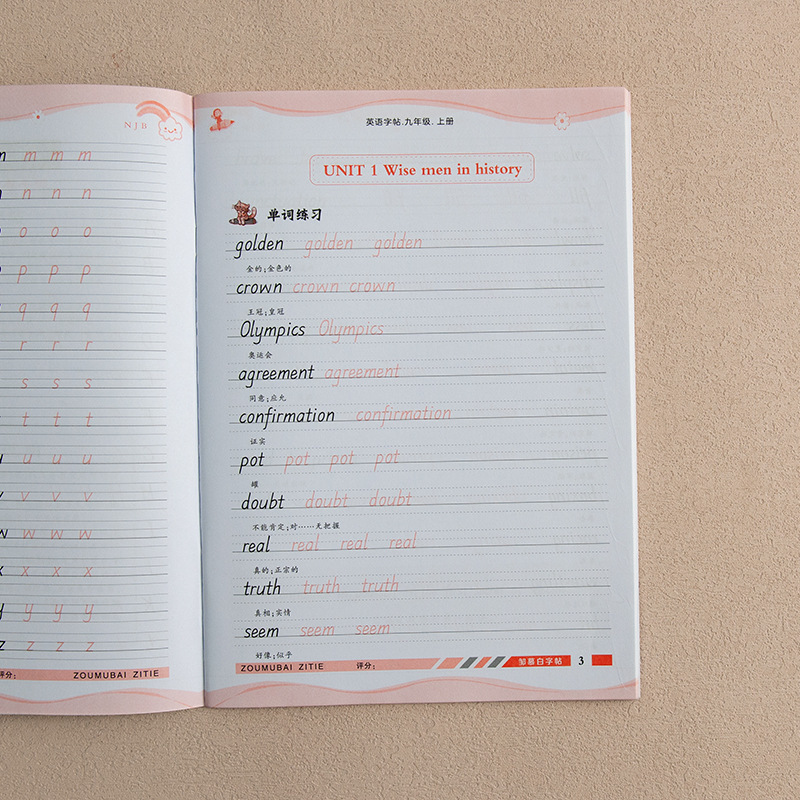 NJB
m m m
n n n
o o o
p p p
q q q
r r r
s s s
t t t
u u u
v v v
w w w w
x x x
y y y
z z z z
评分:
ZOUMUBAI ZITIE
英语字帖.九年级.上册
UNIT 1 Wise men in history
单词练习
golden golden golden
金的;金色的
crown crown crown
王冠;皇冠
Olympics Olympics
奥运会
agreement agreement
同意;应允
confirmation confirmation
证实
pot pot pot pot
罐
doubt doubt doubt
不能肯定;对……无把握
real real real real
真的;正宗的
truth truth truth
真相;实情
seem seem seem
好像;似乎
ZOUMUBAI ZITIE 评分: 邹慕白字帖 3